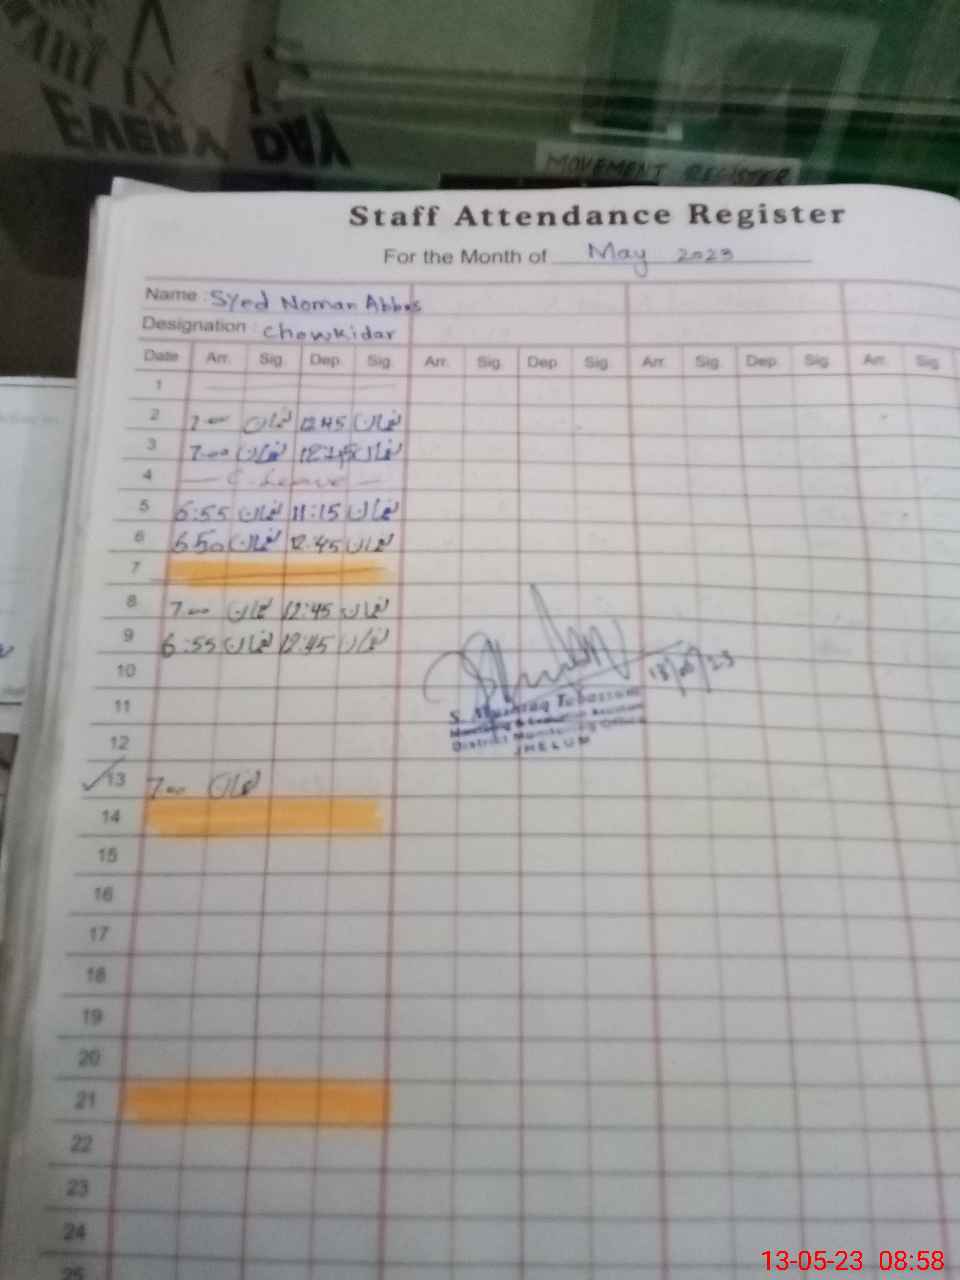 EVERY DAY
MOVEMENT REGISTER
Staff Attendance Register
For the Month of May 2023
Name : Syed Noman Abbas
Designation : Chowkidar
Date Arr. Sig. Dep. Sig. Arr. Sig. Dep. Sig. Arr. Sig. Dep. Sig. Arr. Sig.
1
2 7:00 نعمان 12:45 نعمان
3 7:00 نعمان نعمان
4 — C. Leave —
5 6:55 نعمان 11:15 نعمان
6 6:50 نعمان 12:45 نعمان
7
8 7:00 نعمان 12:45 نعمان
9 6:55 نعمان 12:45 نعمان
10
11
S. Mushtaq Tabassum
Monitoring & Evaluation Assistant
District Monitoring Office
JHELUM
12
13 7:00 نعمان
14
15
16
17
18
19
20
21
22
23
24
25
13-05-23 08:58